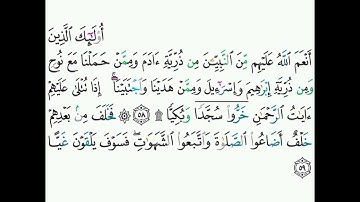 أُو۟لَـٰٓئِكَ ٱلَّذِينَ
أَنْعَمَ ٱللَّهُ عَلَيْهِم مِّنَ ٱلنَّبِيِّـۧنَ مِن ذُرِّيَّةِ ءَادَمَ وَمِمَّنْ حَمَلْنَا مَعَ نُوحٍ
وَمِن ذُرِّيَّةِ إِبْرَٰهِيمَ وَإِسْرَٰٓءِيلَ وَمِمَّنْ هَدَيْنَا وَٱجْتَبَيْنَآ ۚ إِذَا تُتْلَىٰ عَلَيْهِمْ
ءَايَـٰتُ ٱلرَّحْمَـٰنِ خَرُّوا۟ سُجَّدًا وَبُكِيًّا ۩ ٥٨ ۞ فَخَلَفَ مِنۢ بَعْدِهِمْ
خَلْفٌ أَضَاعُوا۟ ٱلصَّلَوٰةَ وَٱتَّبَعُوا۟ ٱلشَّهَوَٰتِ ۖ فَسَوْفَ يَلْقَوْنَ غَيًّا
٥٩